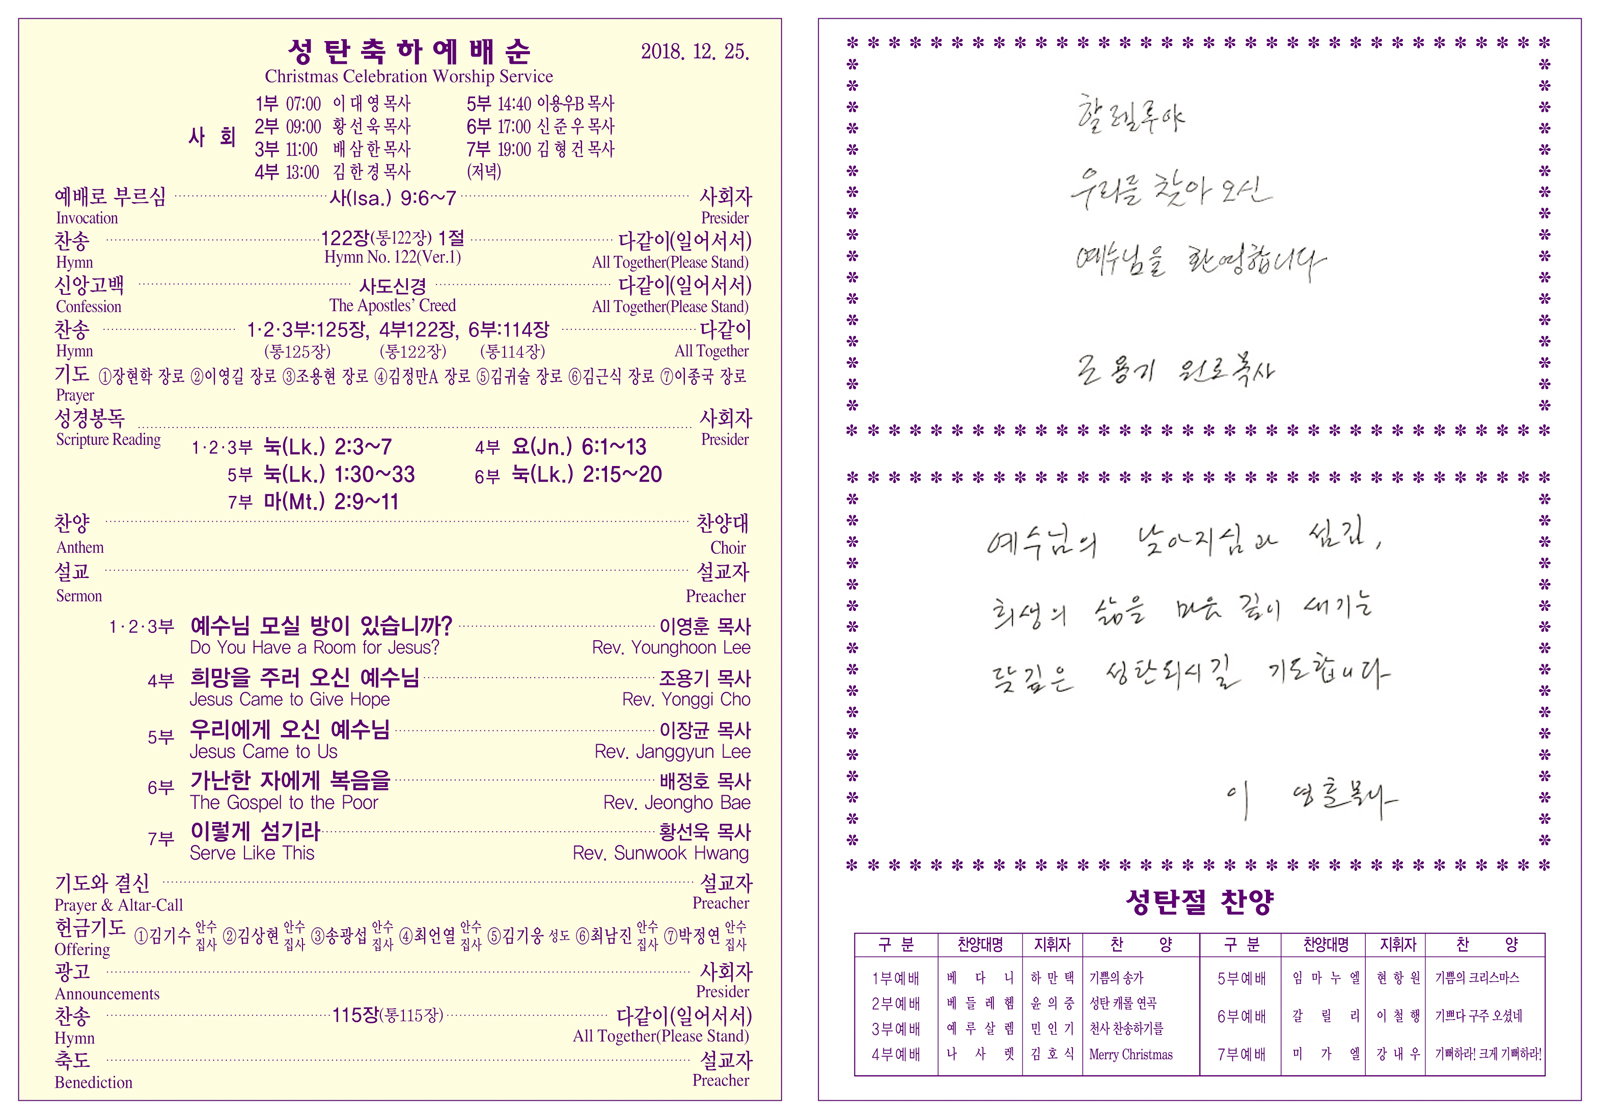 성탄축하예배순
2018. 12. 25.
Christmas Celebration Worship Service
사 회
1부 07:00 이대영목사 5부 14:40 이용우B목사
2부 09:00 황선욱목사 6부 17:00 신준우목사
3부 11:00 배삼한목사 7부 19:00 김형건목사
4부 13:00 김한경목사 (저녁)
예배로 부르심 사(Isa.) 9:6~7 사회자
Invocation Presider
찬송 122장(통122장) 1절 다같이(일어서서)
Hymn Hymn No. 122(Ver.1) All Together(Please Stand)
신앙고백 사도신경 다같이(일어서서)
Confession The Apostles' Creed All Together(Please Stand)
찬송 1·2·3부:125장, 4부122장, 6부:114장 다같이
Hymn (통125장) (통122장) (통114장) All Together
기도 ①장현학 장로 ②이영길 장로 ③조용현 장로 ④김정만A 장로 ⑤김귀술 장로 ⑥김근식 장로 ⑦이종국 장로
Prayer
성경봉독 사회자
Scripture Reading Presider
1·2·3부 눅(Lk.) 2:3~7 4부 요(Jn.) 6:1~13
5부 눅(Lk.) 1:30~33 6부 눅(Lk.) 2:15~20
7부 마(Mt.) 2:9~11
찬양 찬양대
Anthem Choir
설교 설교자
Sermon Preacher
1·2·3부 예수님 모실 방이 있습니까? 이영훈 목사
Do You Have a Room for Jesus? Rev. Younghoon Lee
4부 희망을 주러 오신 예수님 조용기 목사
Jesus Came to Give Hope Rev. Yonggi Cho
5부 우리에게 오신 예수님 이장균 목사
Jesus Came to Us Rev. Janggyun Lee
6부 가난한 자에게 복음을 배정호 목사
The Gospel to the Poor Rev. Jeongho Bae
7부 이렇게 섬기라 황선욱 목사
Serve Like This Rev. Sunwook Hwang
기도와 결신 설교자
Prayer & Altar-Call Preacher
헌금기도 ①김기수 안수집사 ②김상현 안수집사 ③송광섭 안수집사 ④최언열 안수집사 ⑤김기웅 성도 ⑥최남진 안수집사 ⑦박정연 안수집사
Offering
광고 사회자
Announcements Presider
찬송 115장(통115장) 다같이(일어서서)
Hymn All Together(Please Stand)
축도 설교자
Benediction Preacher
할렐루야
우리를 찾아 오신
예수님을 환영합니다
조용기 원로목사
예수님의 낮아지심과 섬김,
희생의 삶을 마음 깊이 새기는
뜻깊은 성탄되시길 기도합니다
이 영훈목사
성탄절 찬양
구 분 찬양대명 지휘자 찬 양 구 분 찬양대명 지휘자 찬 양
1부예배 베다니 하만택 기쁨의 송가 5부예배 임마누엘 현항원 기쁨의 크리스마스
2부예배 베들레헴 윤의중 성탄 캐롤 연곡
3부예배 예루살렘 민인기 천사 찬송하기를 6부예배 갈릴리 이철행 기쁘다 구주 오셨네
4부예배 나사렛 김호식 Merry Christmas 7부예배 미가엘 강내우 기뻐하라! 크게 기뻐하라!